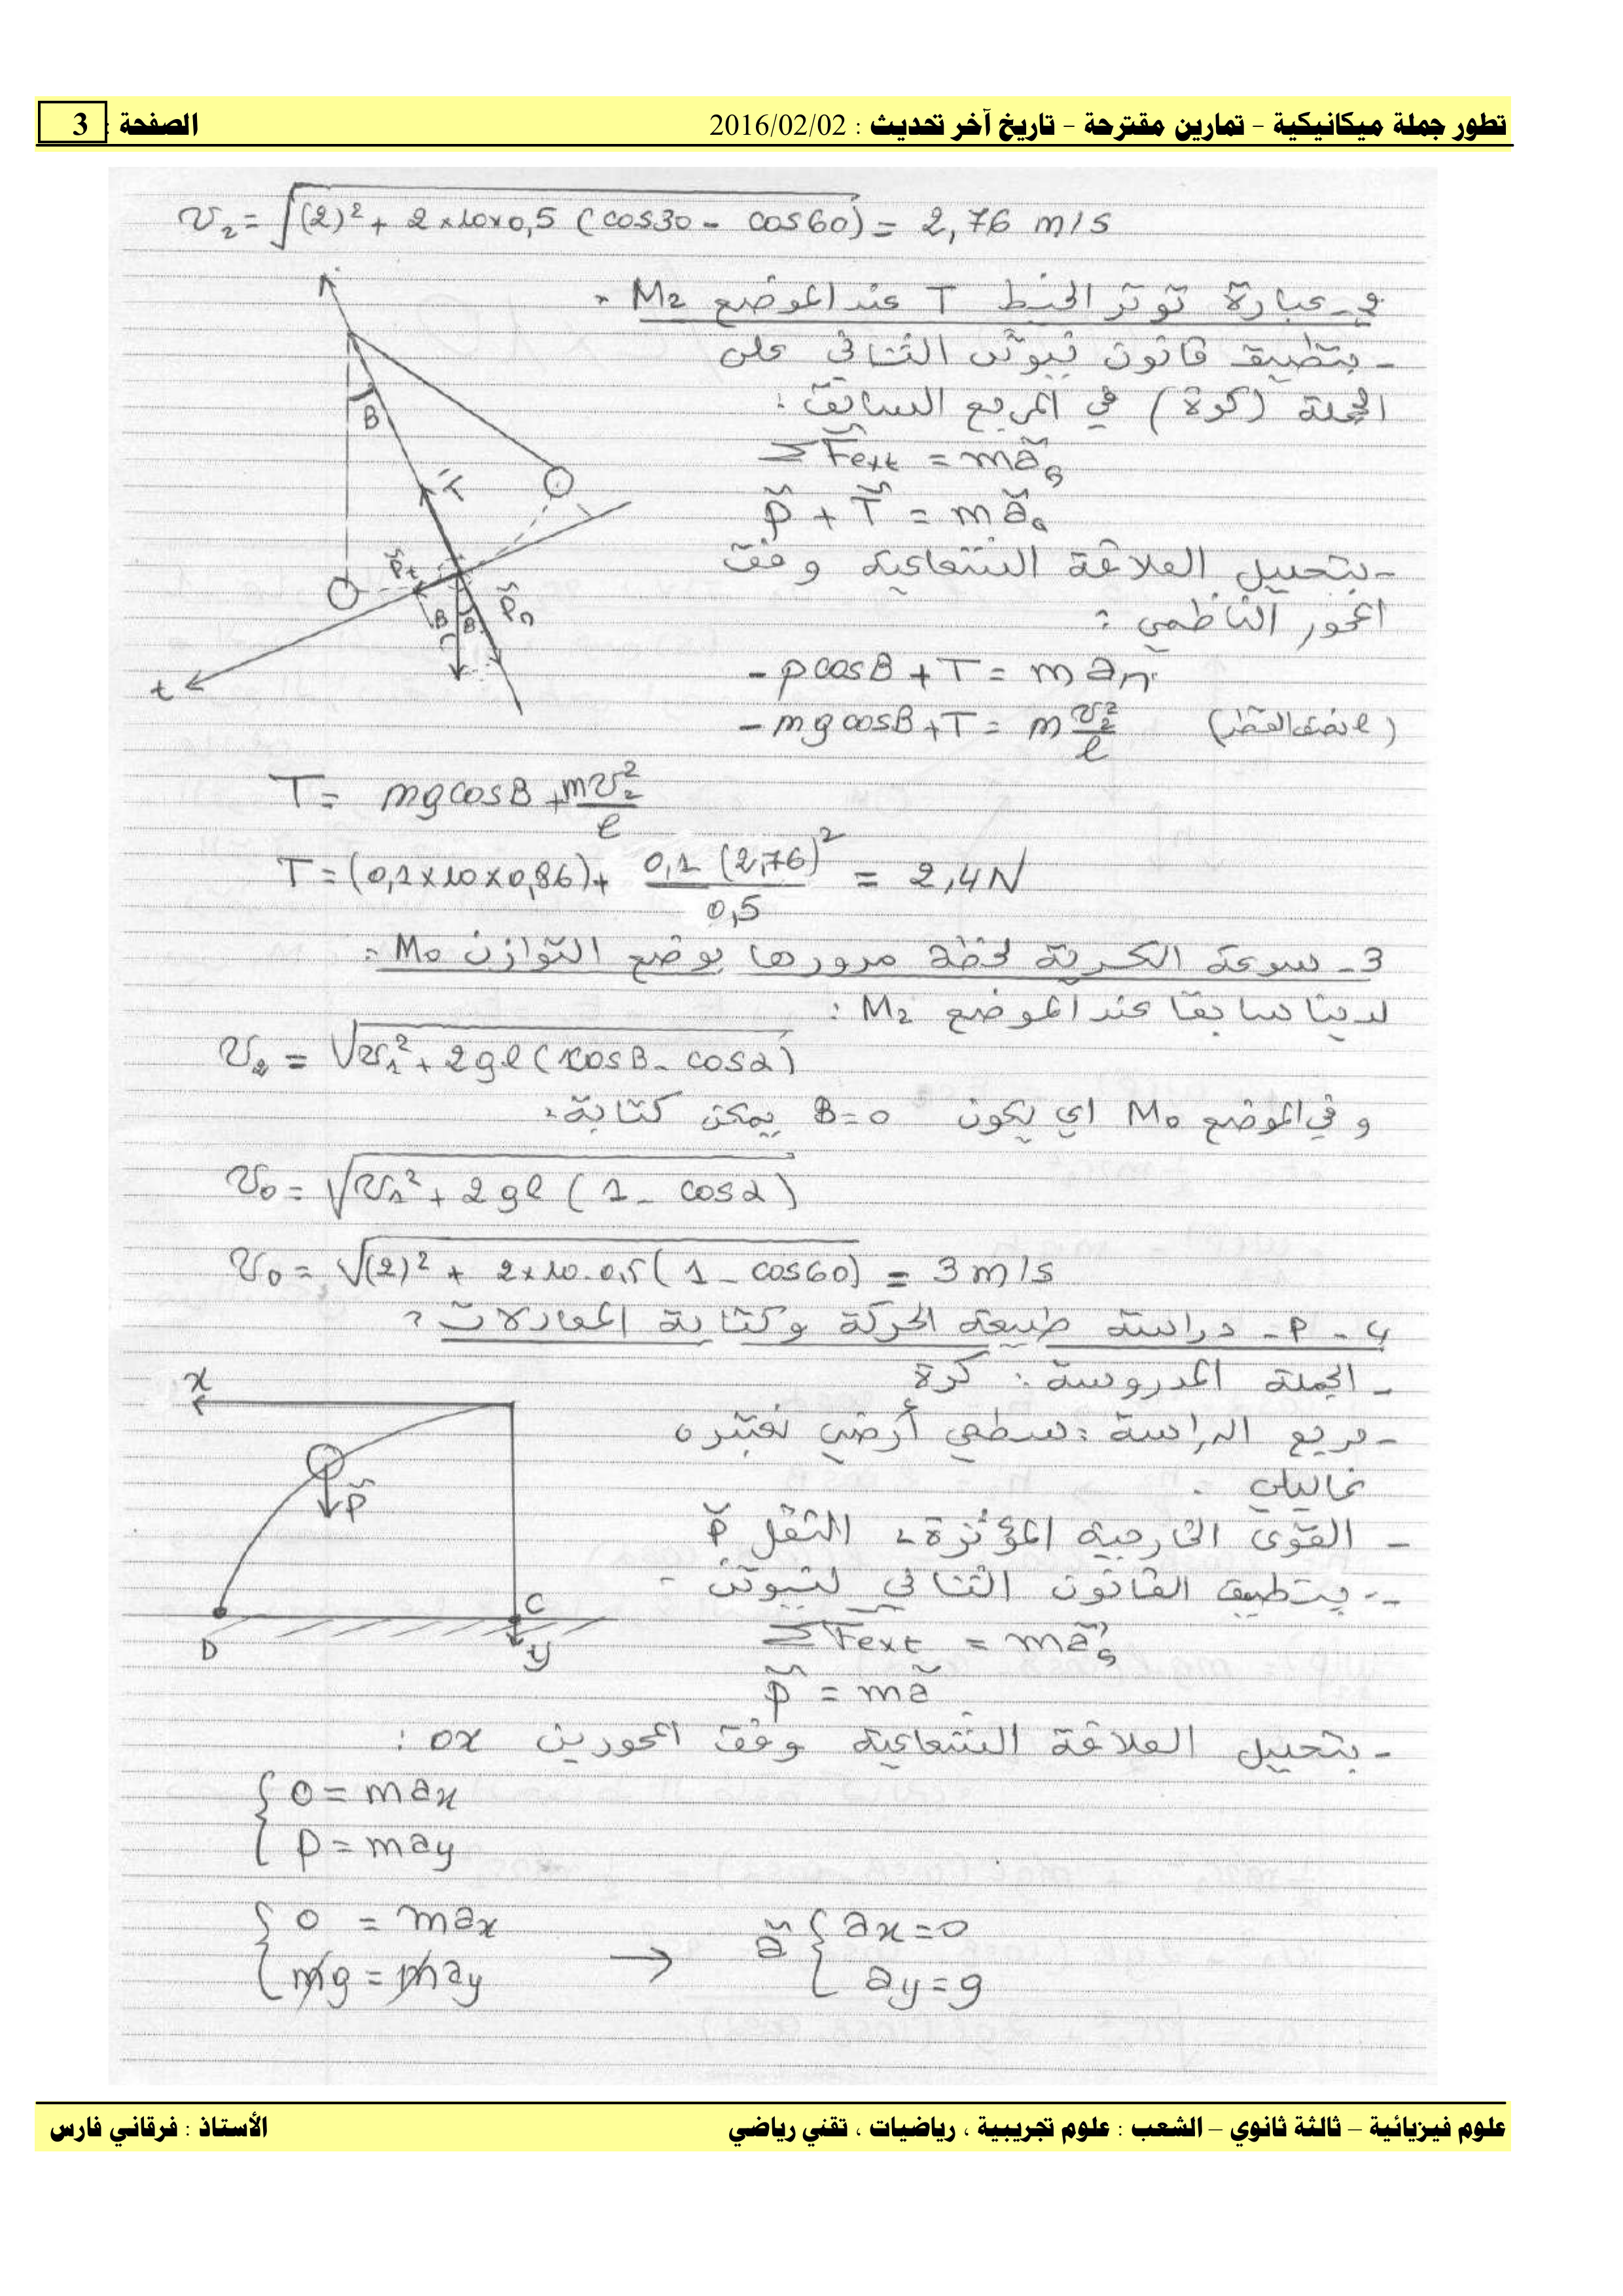 تطور جملة ميكانيكية - تمارين مقترحة - تاريخ آخر تحديث : 2016/02/02 الصفحة : 3
v₂ = √((2)² + 2×10×0,5 (cos30 - cos60)) = 2,76 m/s
جـ- عبارة توتر الخيط T عند الموضع M₂ :
- بتطبيق قانون نيوتن الثاني على
الجملة (كرة) في المرجع السابق :
ΣF⃗ext = ma⃗G
P⃗ + T⃗ = ma⃗G
- بتحليل العلاقة الشعاعية وفق
المحور الناظمي :
- p cosB + T = m an
- mg cosB + T = m v₂²/l (l نصف القطر)
B
T⃗
P⃗t
P⃗n
B
B
t
T = mg cosB + mv₂²/l
T = (0,1×10×0,86) + 0,1 (2,76)²/0,5 = 2,4N
3- سرعة الكرية لحظة مرورها بوضع التوازن M₀ :
لدينا سابقا عند الموضع M₂ :
v₂ = √(v₁² + 2gl (cosB - cosα))
و في الموضع M₀ اي يكون B=0 يمكن كتابة :
v₀ = √(v₁² + 2gl (1 - cosα))
v₀ = √((2)² + 2×10.0,5 (1 - cos60)) = 3 m/s
4 - أ - دراسة طبيعة الحركة وكتابة المعادلات :
- الجملة المدروسة : كرة
- مرجع الدراسة : سطحي أرضي نعتبره
غاليلي .
- القوى الخارجية المؤثرة : الثقل P⃗
- بتطبيق القانون الثاني لنيوتن -
ΣF⃗ext = ma⃗G
P⃗ = ma⃗
x
P⃗
C
D
y
- بتحليل العلاقة الشعاعية وفق المحورين ox :
{ 0 = max
{ P = may
{ 0 = max → a⃗ { ax = 0
{ mg = may { ay = g
علوم فيزيائية – ثالثة ثانوي – الشعب : علوم تجريبية ، رياضيات ، تقني رياضي الأستاذ : فرقاني فارس